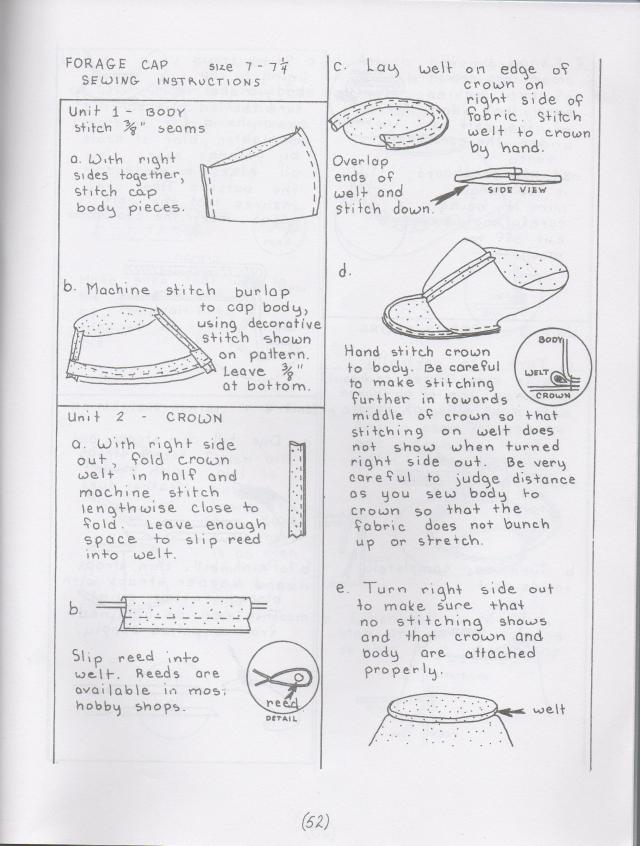 FORAGE CAP SIZE 7 - 7 1/4
SEWING INSTRUCTIONS
Unit 1 - BODY
stitch 3/8" seams
a. With right
sides together,
stitch cap
body pieces.
b. Machine stitch burlap
to cap body,
using decorative
stitch shown
on pattern.
Leave 3/8"
at bottom.
Unit 2 - CROWN
a. With right side
out, fold crown
welt in half and
machine stitch
lengthwise close to
fold. Leave enough
space to slip reed
into welt.
b.
Slip reed into
welt. Reeds are
available in most
hobby shops.
reed
DETAIL
c. Lay welt on edge of
crown on
right side of
fabric. Stitch
welt to crown
by hand.
Overlap
ends of
welt and
stitch down.
SIDE VIEW
d.
Hand stitch crown
to body. Be careful
to make stitching
further in towards
middle of crown so that
stitching on welt does
not show when turned
right side out. Be very
careful to judge distance
as you sew body to
crown so that the
fabric does not bunch
up or stretch.
BODY
WELT
CROWN
e. Turn right side out
to make sure that
no stitching shows
and that crown and
body are attached
properly.
welt
(52)